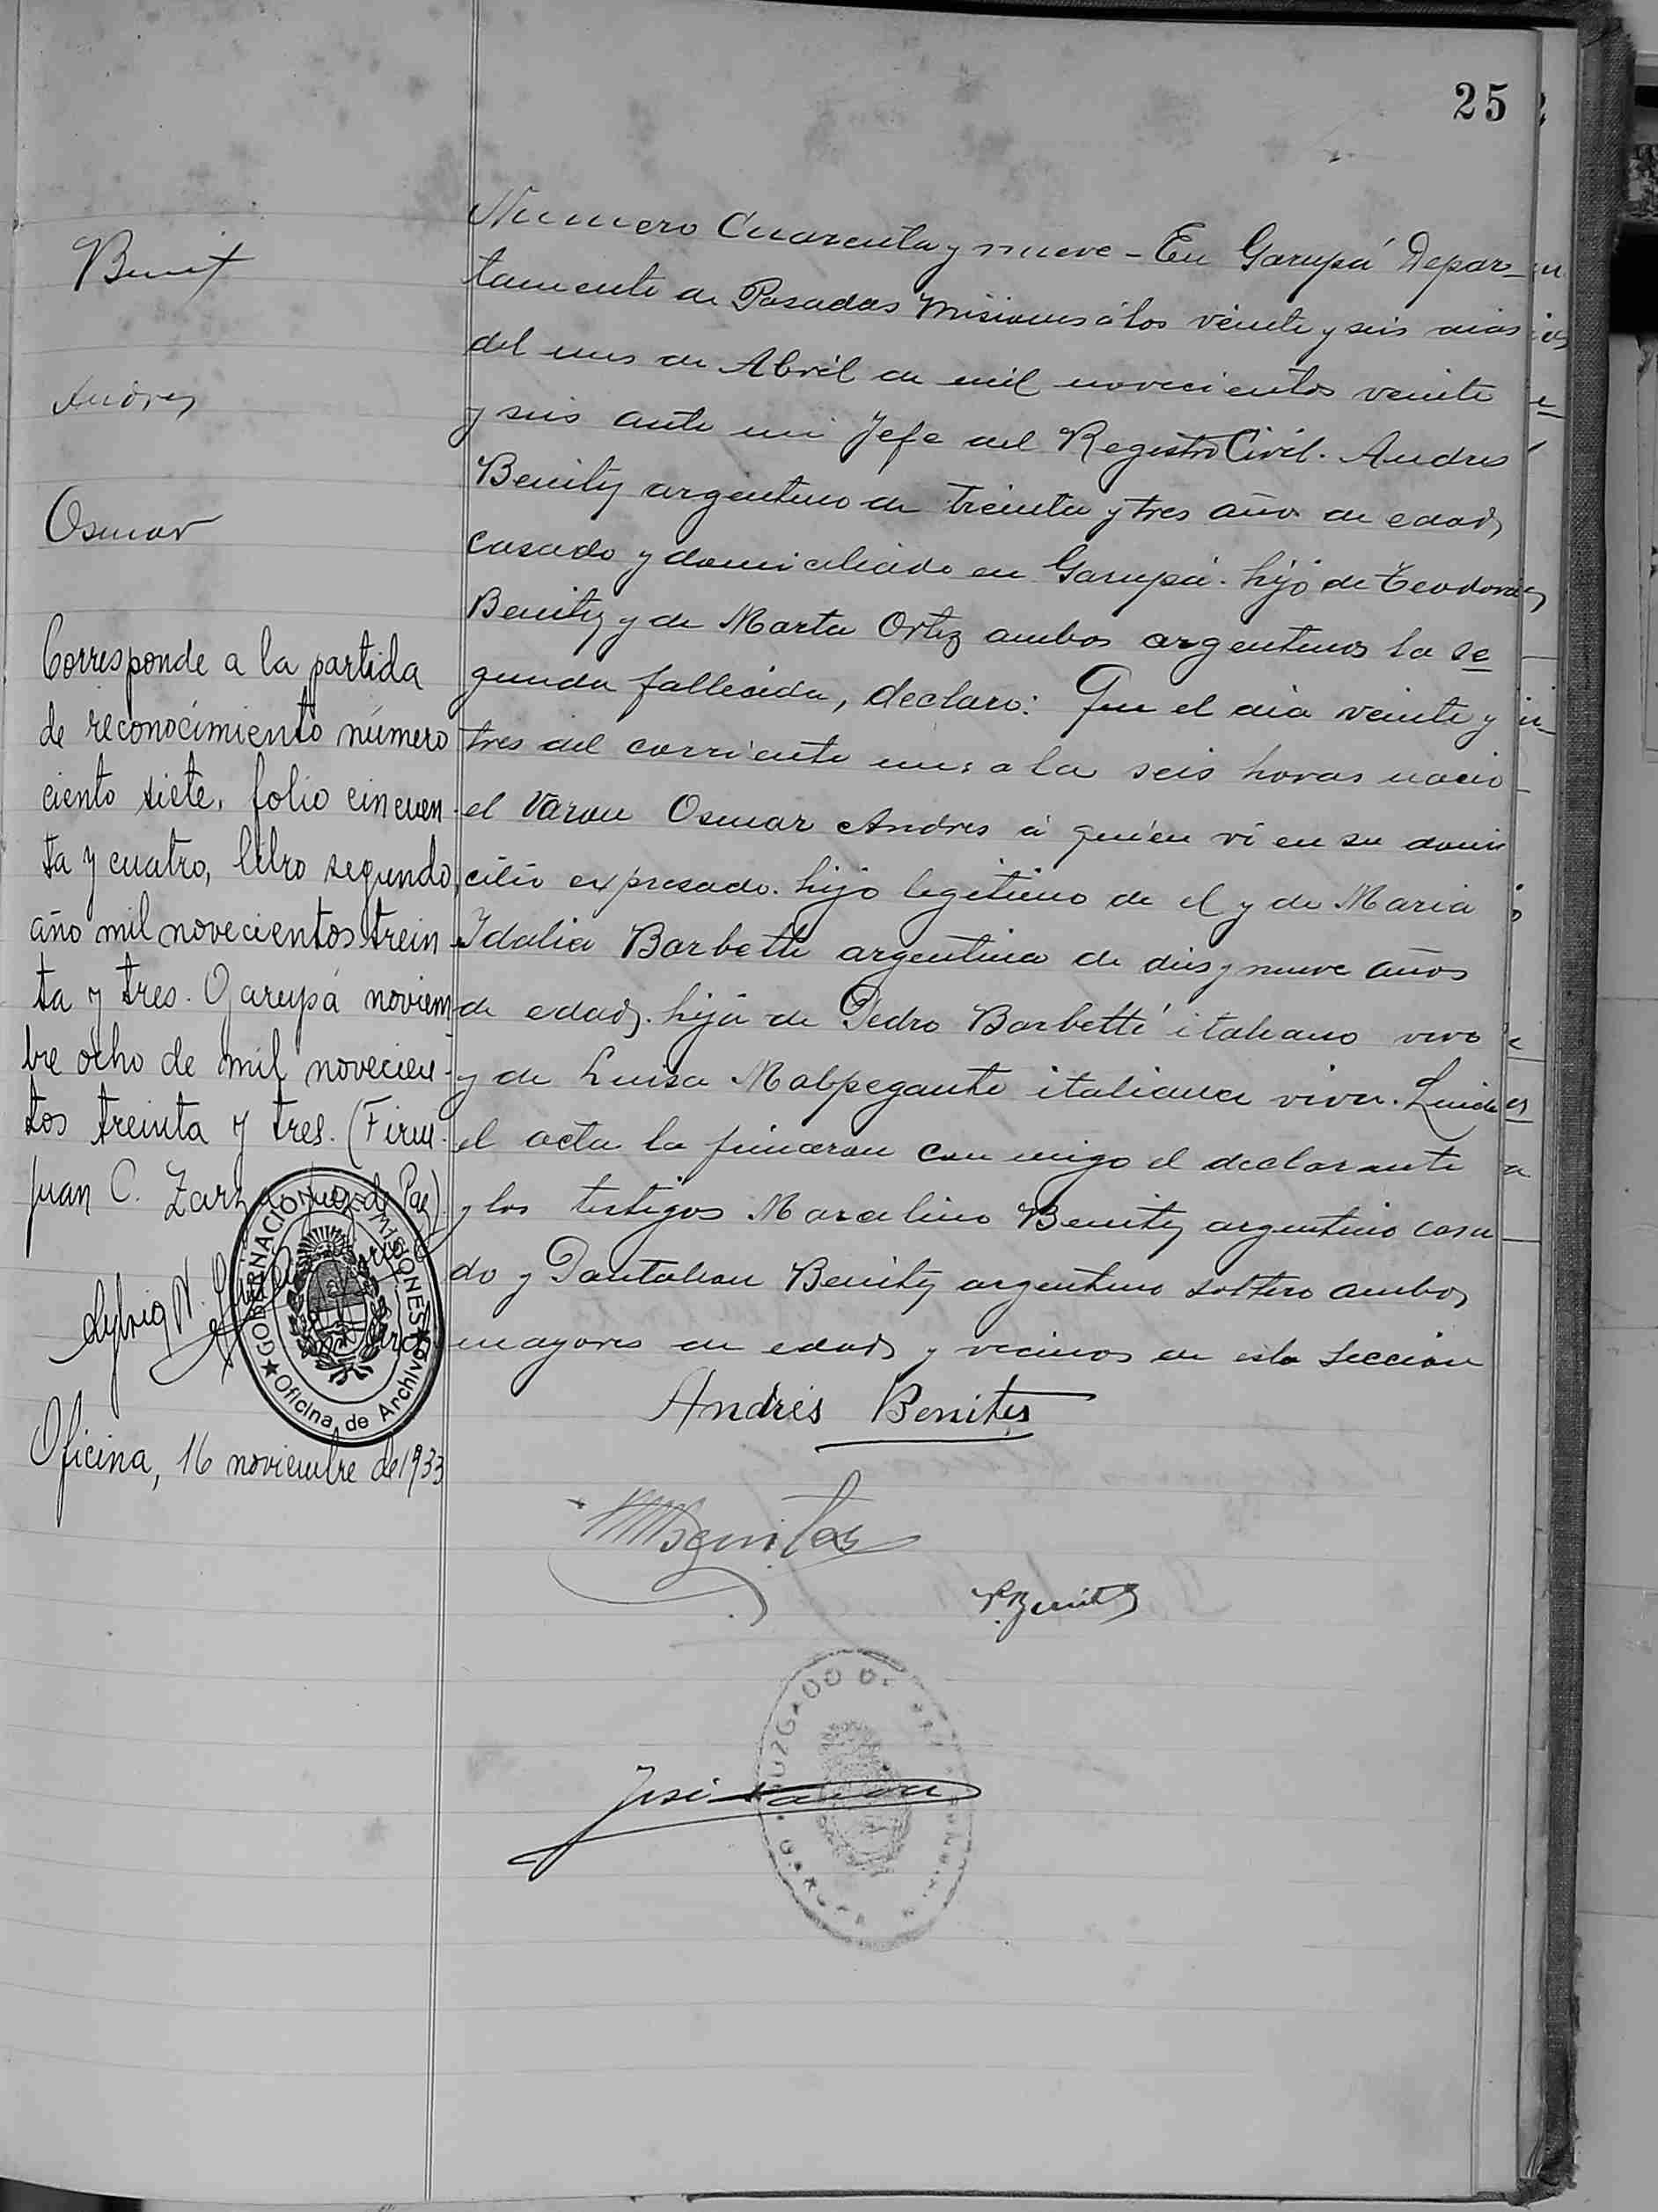 25
Benit
Andres
Osmar
Numero Cuarenta y nueve - En Garupá Depar-
tamento de Posadas Misiones á los veinte y seis dias
del mes de Abril de mil novecientos veinte
y seis ante mi Jefe del Registro Civil. Andres
Benitez argentino de treinta y tres años de edad,
casado y domiciliado en Garupá. hijo de Teodoro
Benitez y de Marta Ortiz ambos argentinos la se
gunda fallesida, declaro: Que el dia veinte y
tres del corriente mes a la seis horas nacio
el Varon Osmar Andres á quien vi en su domi
cilio expresado. hijo legitimo de el y de Maria
Idalia Barbetti argentina de dies y nueve años
de edad. hija de Pedro Barbetti italiano vivo
y de Luisa Malpegante italiana viva. Leida
el acta la firmaron con migo el declarante
y los testigos Marcelino Benitez argentino casa
do y Pantaleon Benitez argentino soltero ambos
mayores de edad y vecinos de esta seccion
Andrés Benites
MBenitez
P. Benitez
José
JUZGADO DE PAZ
GARUPA
Corresponde a la partida
de reconocimiento número
ciento siete, folio cincuen-
ta y cuatro, libro segundo,
año mil novecientos trein
ta y tres. Garupá noviem-
bre ocho de mil novecien-
tos treinta y tres. (Firm.
Juan C. Juez de Paz)
GOBERNACION DE MISIONES
Oficina de Archivo
Oficina, 16 noviembre de 1933